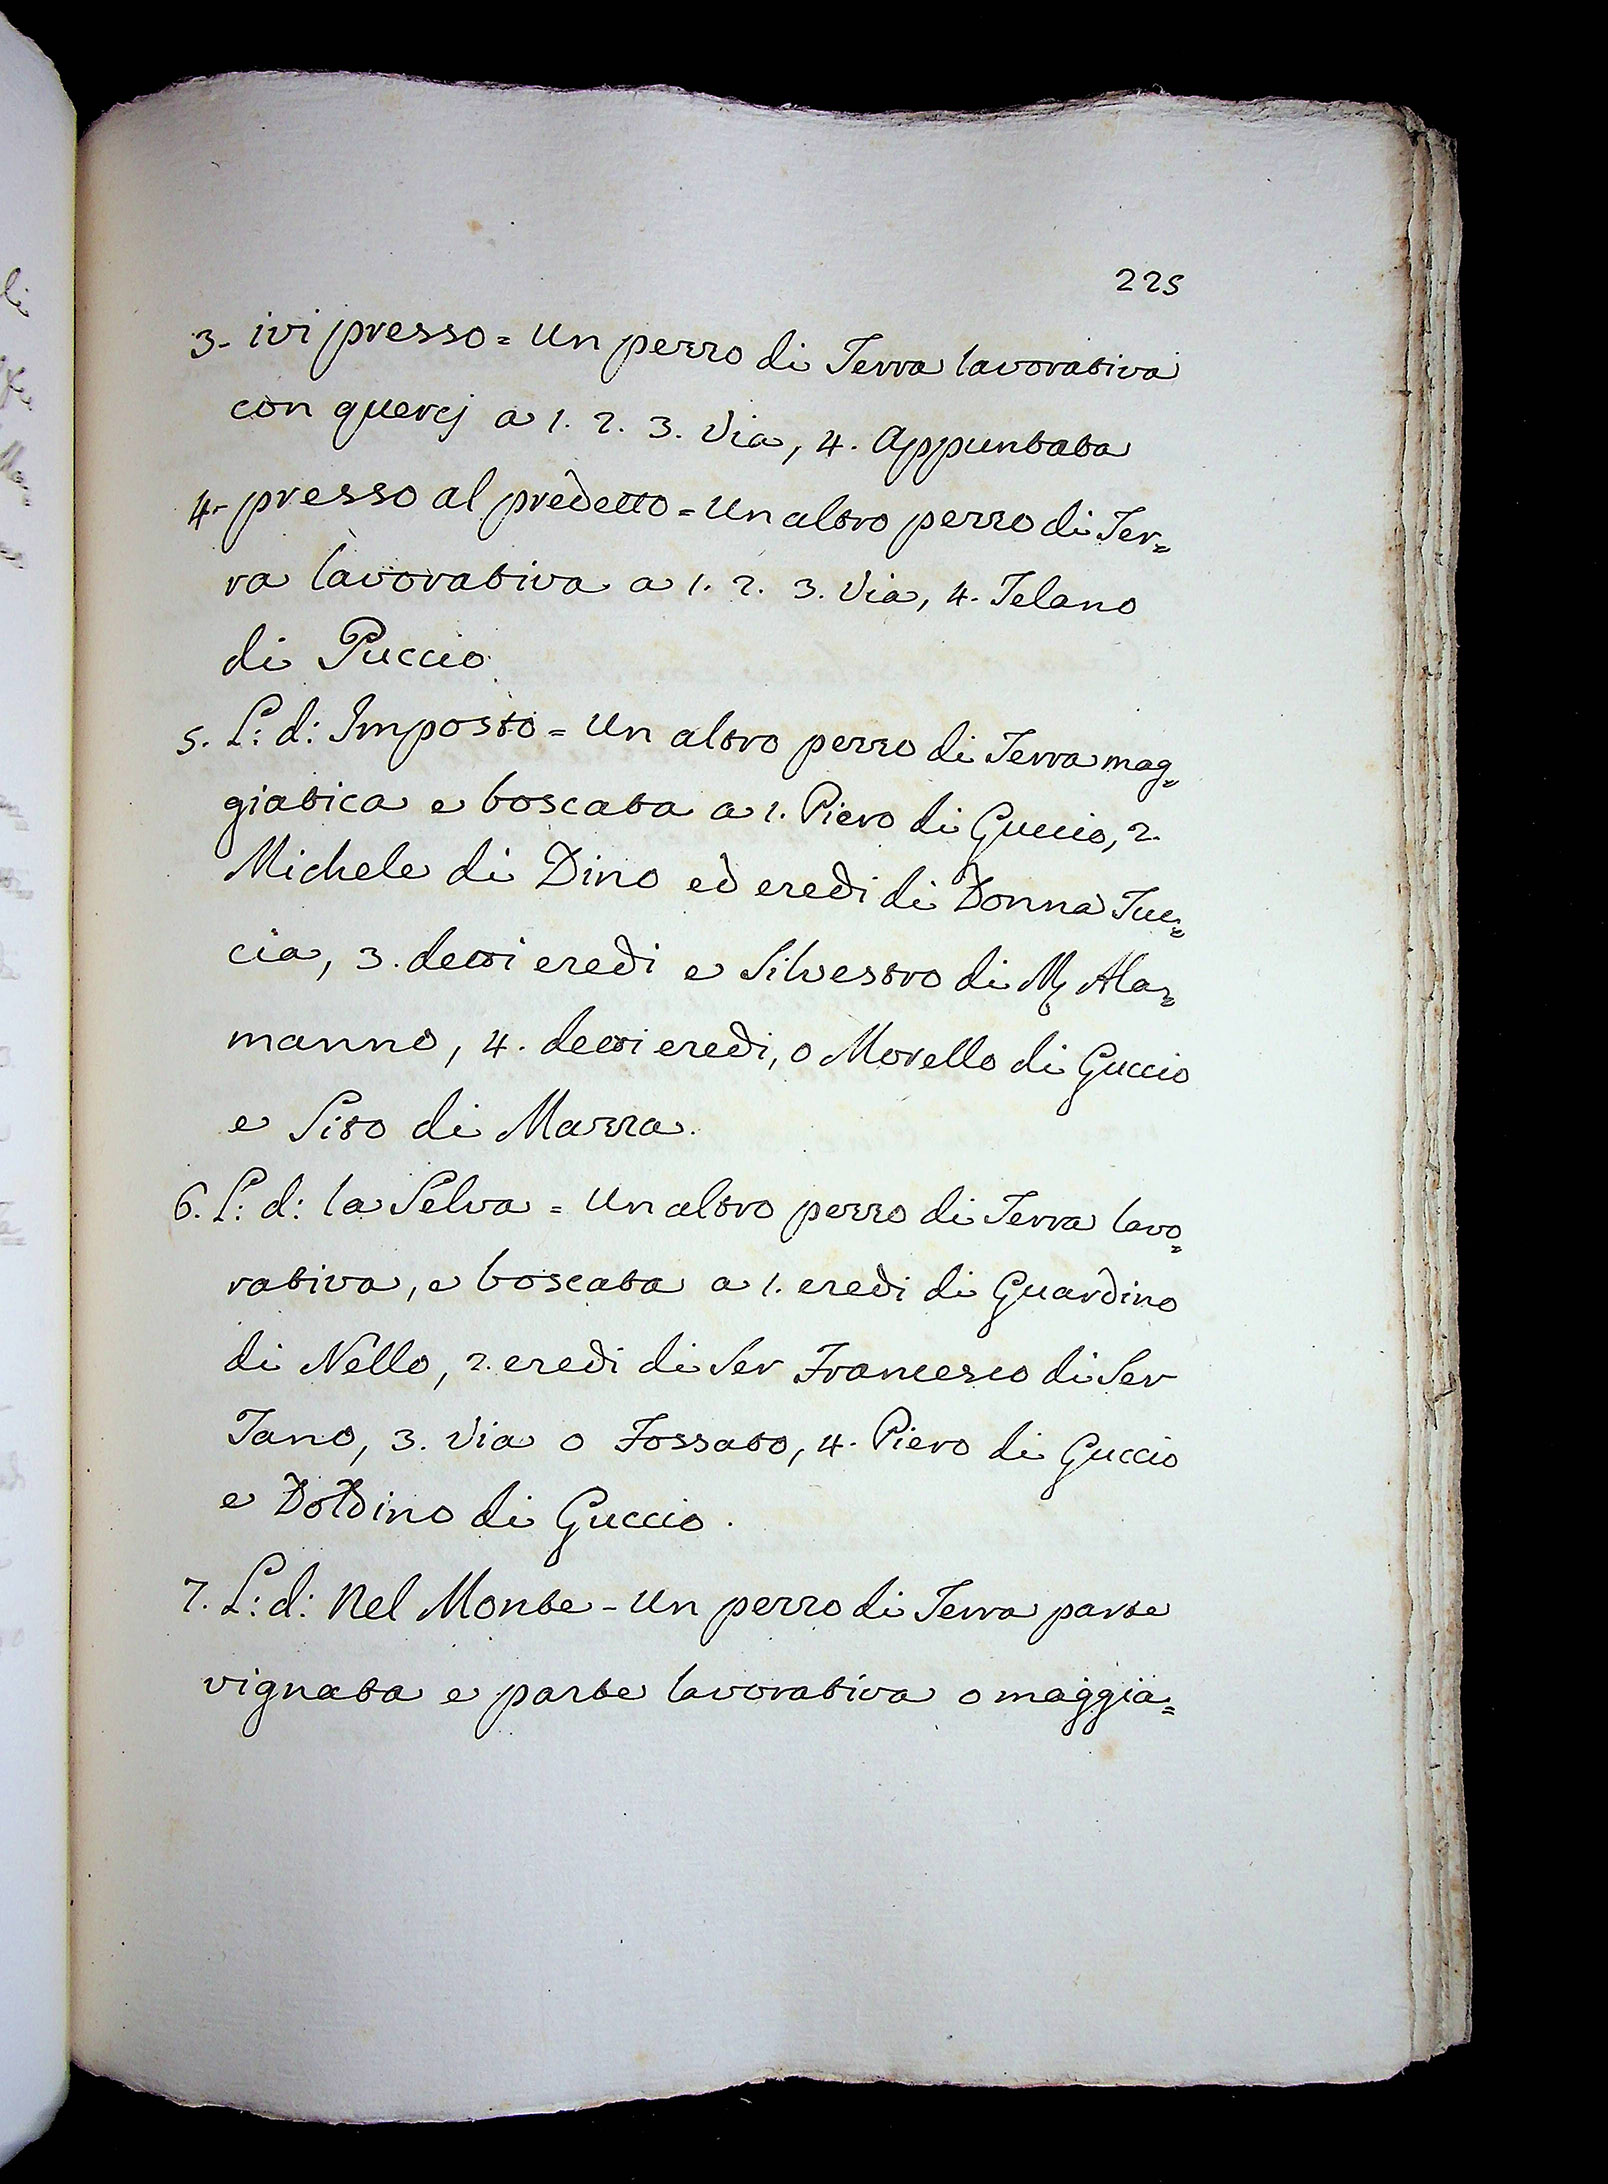 225
3- ivi presso = Un pezzo di Terra lavorativa
con quercj a 1. 2. 3. Via, 4. Appuntata
4- presso al predetto = Un altro pezzo di Ter=
ra lavorativa a 1. 2. 3. Via, 4. Telano
di Puccio.
5. L: d: Imposto = Un altro pezzo di Terra mag=
giatica e boscata a 1. Piero di Guccio, 2.
Michele di Dino ed eredi di Donna Tuc=
cia, 3. detti eredi e Silvestro di M. Ala=
manno, 4. detti eredi, o Morello di Guccio
e Piso di Mazza.
6. L: d: la Selva = Un altro pezzo di Terra lavo=
rativa, e boscata a 1. eredi di Guardino
di Nello, 2. eredi di Ser Francesco di Ser
Tano, 3. Via o Fossato, 4. Piero di Guccio
e Doldino di Guccio.
7. L: d: Nel Monte - Un pezzo di Terra parte
vignata e parte lavorativa o maggia=